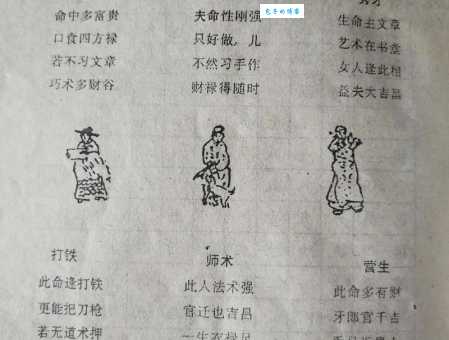 命中多富贵
口食四方禄
若不习文章
巧术多财谷
夫命性刚强
只好做，儿
不然习手作
财禄得随时
生命主文章
艺术在书堂
女人逢此相
益夫大吉昌
打铁
此命逢打铁
更能把刀枪
若无道术押
师术
此人法术强
官迁也吉昌
一生衣禄足
营生
此命多有财
牙郎官千吉